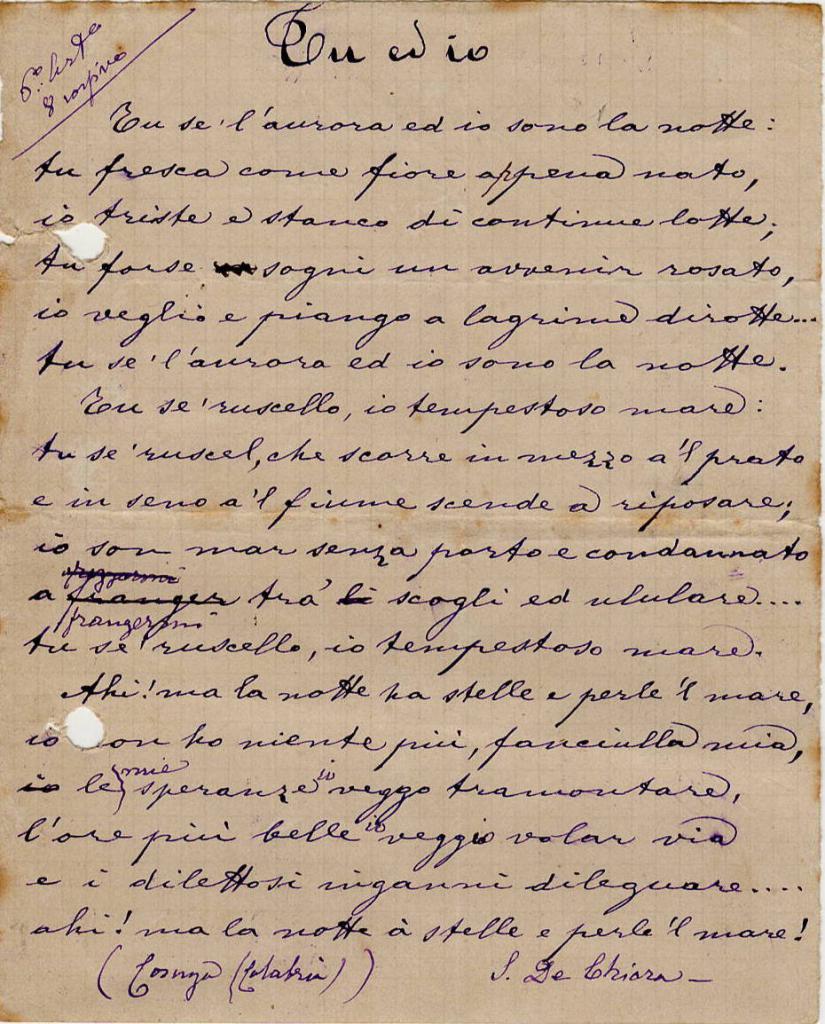 Tu ed io
8
Tu se' l'aurora ed io sono la notte:
tu fresca come fiore appena nato,
io triste e stanco di continue lotte;
tu forse sogni un avvenir rosato,
io veglio e piango a lagrime dirotte...
tu se' l'aurora ed io sono la notte.
Tu se' ruscello, io tempestoso mare:
tu se' ruscel, che scorre in mezzo a'l prato
e in seno a'l fiume scende a riposare;
io son mar senza porto e condannato
a franger tra' li scogli ed ululare....
frangermi
tu se' ruscello, io tempestoso mare.
Ahi! ma la notte ha stelle e perle 'l mare,
io non ho niente più, fanciulla mia,
io le mie speranze io veggo tramontare,
l'ore più belle io veggio volar via
e i dilettosi inganni dileguare....
ahi! ma la notte à stelle e perle 'l mare!
(Cosenza (Calabria)) S. De Chiara —